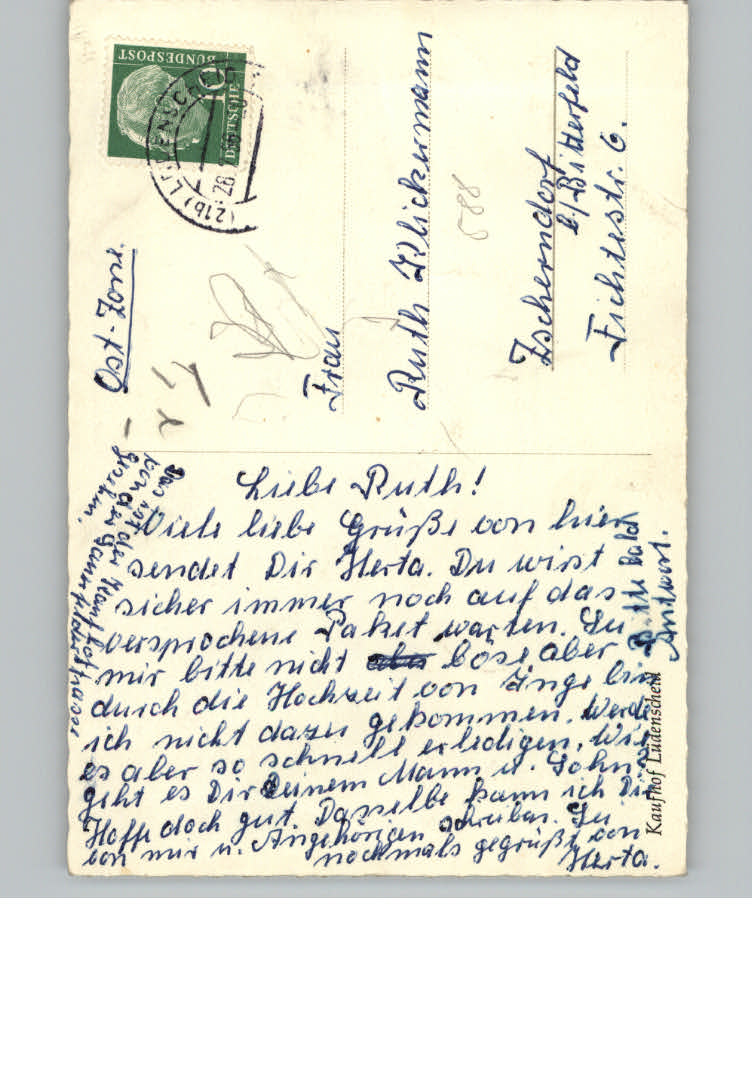 DEUTSCHE
BUNDESPOST
10
(21b) LÜDENSCHEID
Ost-Zone.
Frau
Ruth Klickermann
588
Zscherndorf
b/Bitterfeld
Fichtestr. 6.
Liebe Ruth!
Viele liebe Grüße von hier
sendet Dir Herta. Du wirst
sicher immer noch auf das
versprochene Paket warten. Sei
mir bitte nicht böse aber
durch die Hochzeit von Inge bin
ich nicht dazu gekommen. Werde
es aber so schnell erledigen. Wie
geht es Dir Deinem Mann u. Sohn
Hoffe doch gut. Dasselbe kann ich Dir
von mir u. Angehörigen schreiben. Sei
nochmals gegrüßt von
Herta.
Bitte bald
Antwort.
Das ist der Kaufhof
von der
gesehen.
Kaufhof Lüdenscheid